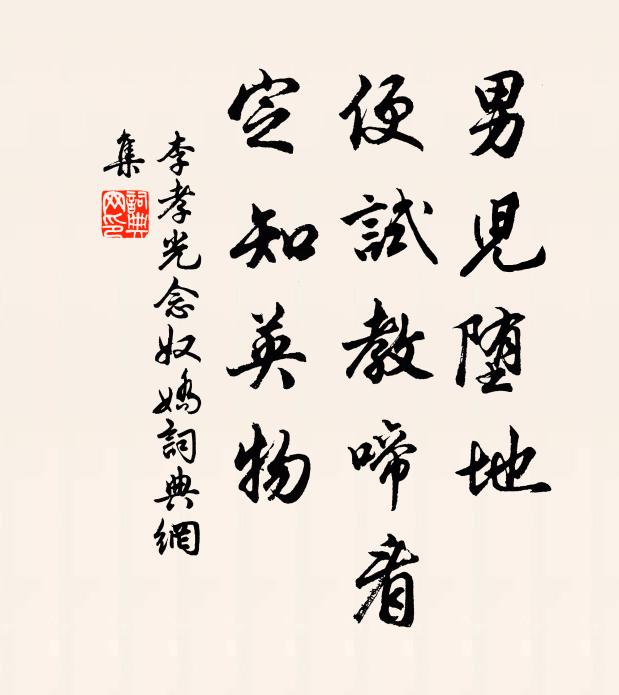 男児堕地
便試教啼看
定知英物
李孝光念奴嬌詞典網
集
詞典网印